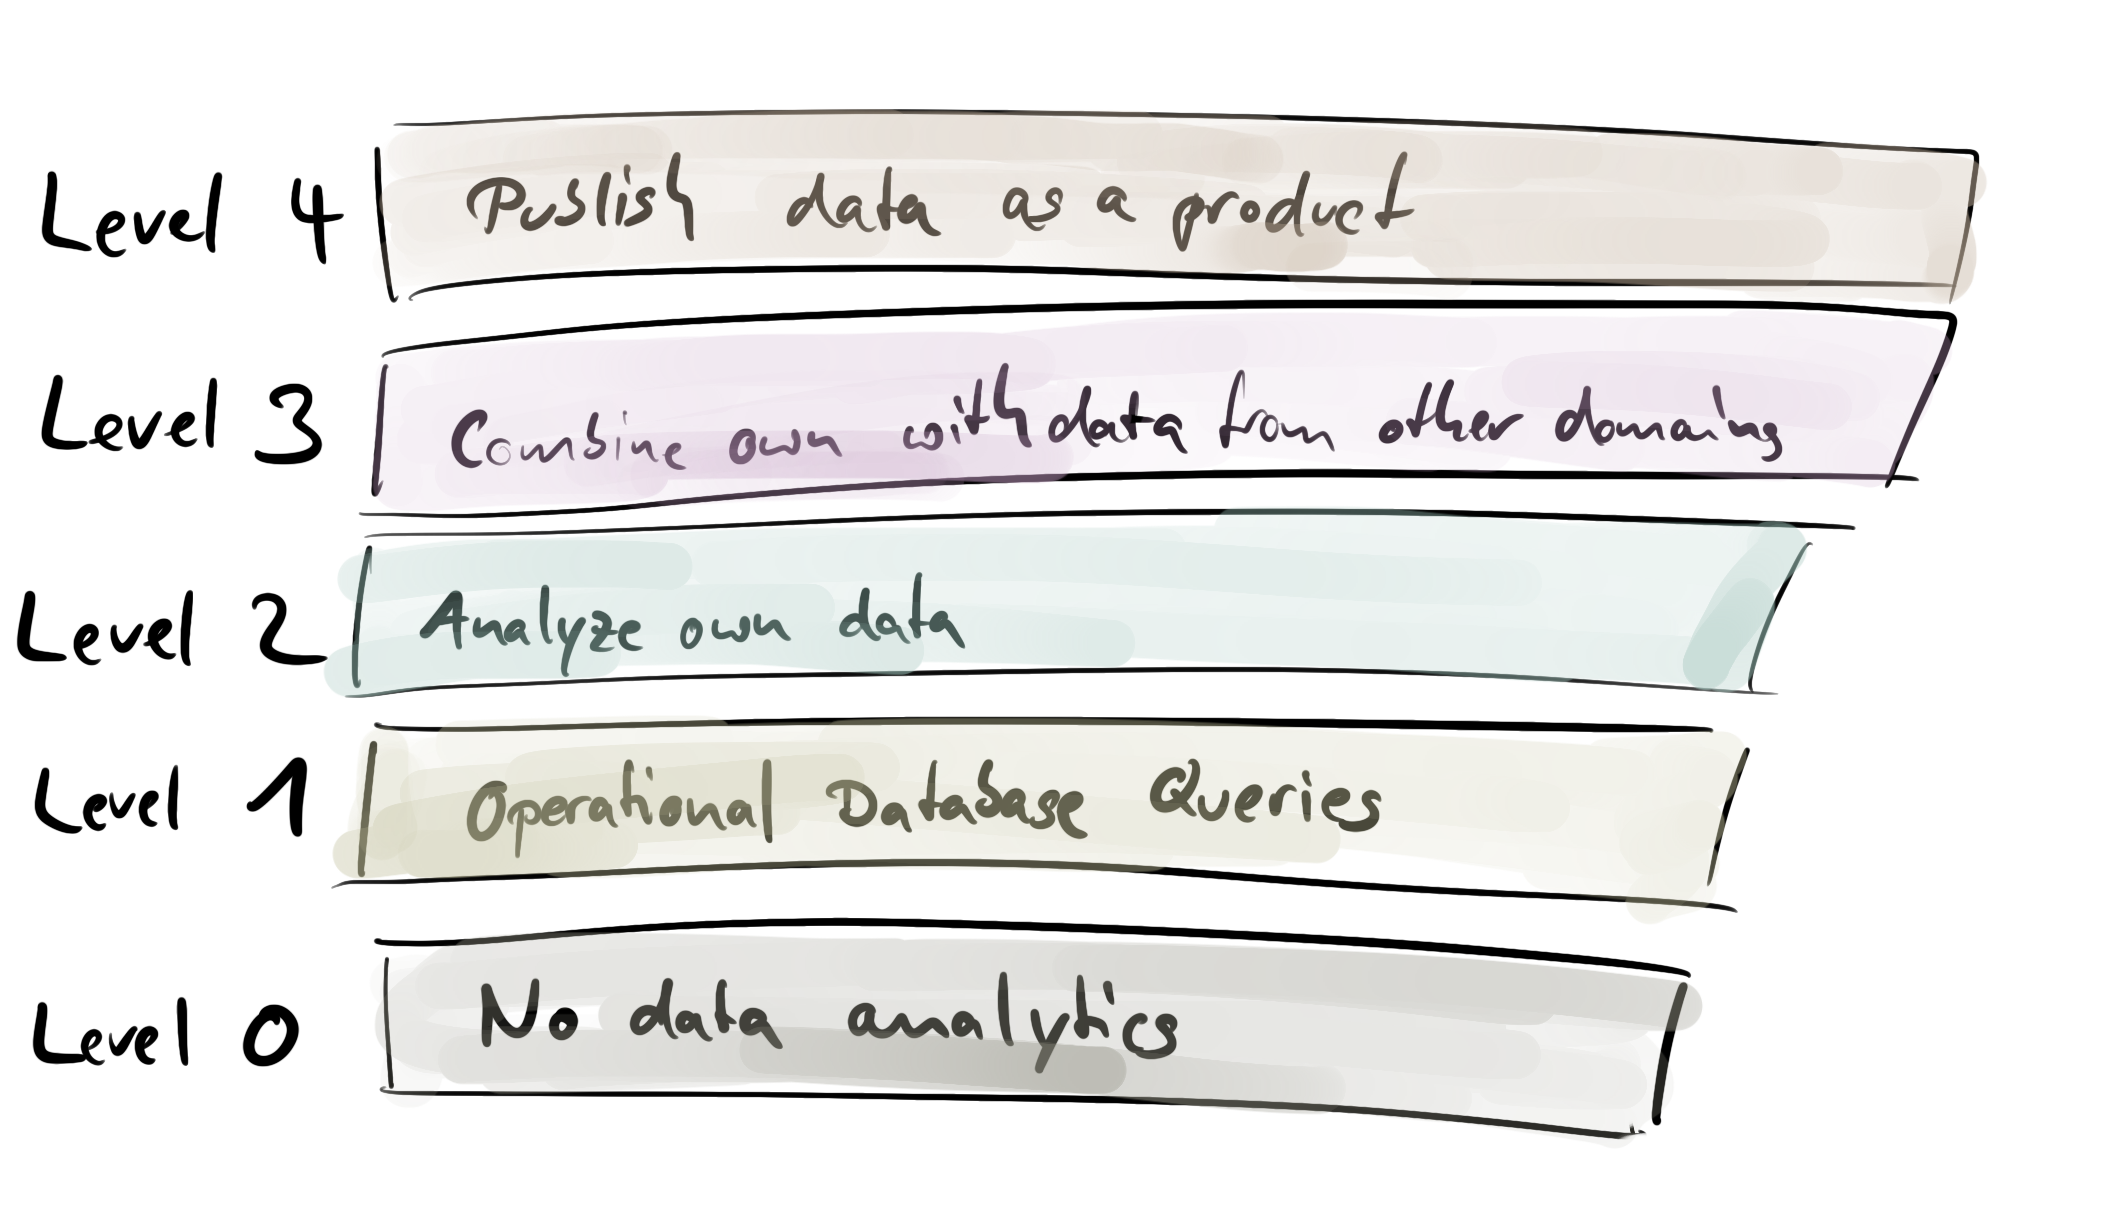 Level 4 Publish data as a product
Level 3 Combine own with data from other domains
Level 2 Analyze own data
Level 1 Operational Database Queries
Level 0 No data analytics